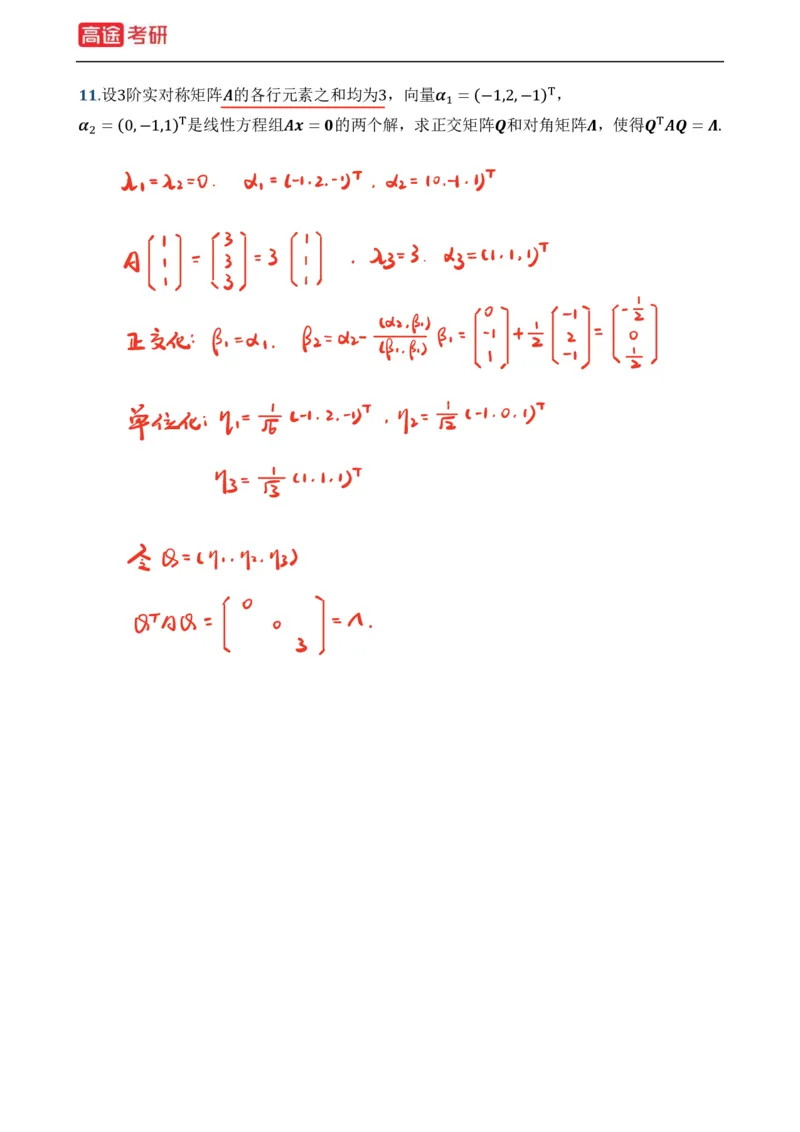 高途考研
11.设3阶实对称矩阵A的各行元素之和均为3，向量α₁ = (−1,2,−1)ᵀ，
α₂ = (0,−1,1)ᵀ是线性方程组Ax = 0的两个解，求正交矩阵Q和对角矩阵Λ，使得QᵀAQ = Λ.
λ₁=λ₂=0. α₁=(-1.2.-1)ᵀ, α₂=(0.-1.1)ᵀ
A(1 1 1) = (3 3 3) = 3 (1 1 1) , λ₃=3. α₃=(1.1.1)ᵀ
正交化: β₁=α₁. β₂=α₂- (α₂,β₁)/(β₁,β₁) β₁ = (0 -1 1) + 1/2 (-1 2 -1) = (-1/2 0 1/2)
单位化: η₁= 1/√6 (-1.2.-1)ᵀ, η₂= 1/√2 (-1.0.1)ᵀ
η₃= 1/√3 (1.1.1)ᵀ
令 Q=(η₁.η₂.η₃)
QᵀAQ = (0 0 3) = Λ.